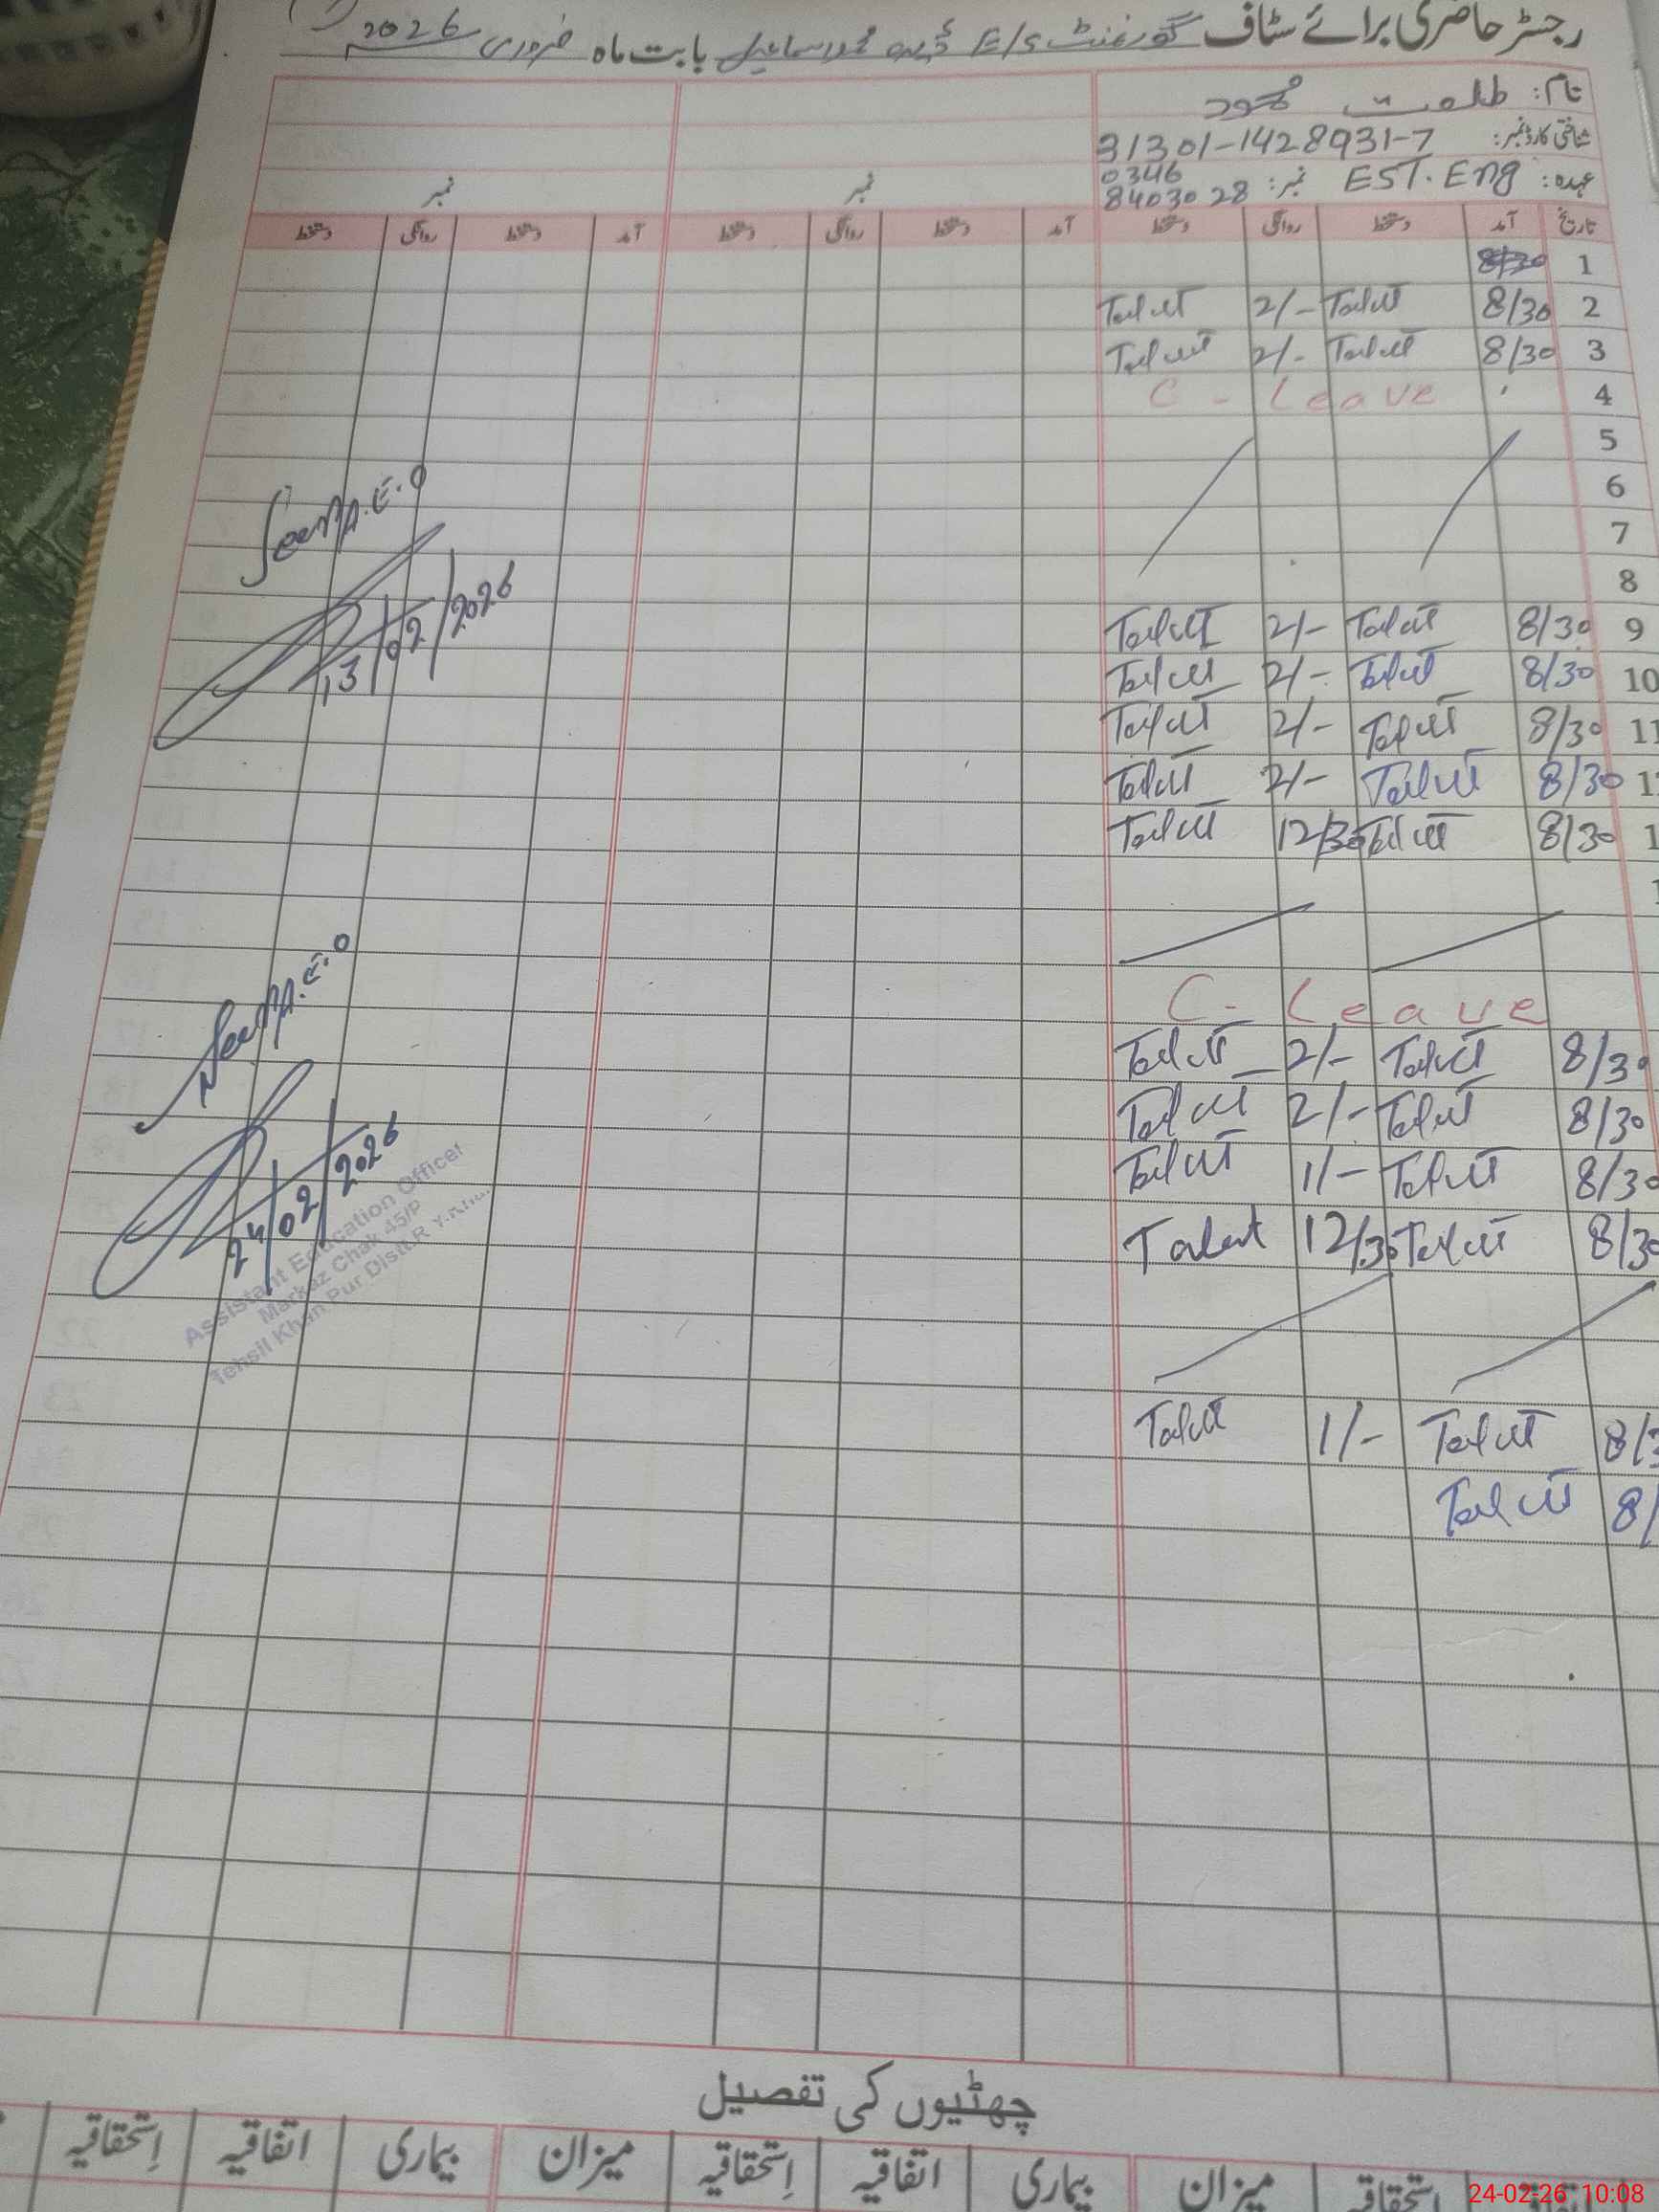 رجسٹر حاضری برائے سٹاف گورنمنٹ E/S ڈیرہ محمد اسماعیل بابت ماہ فروری 2026
نام: طلعت محمود
شناختی کارڈ نمبر: 31301-1428931-7
عہدہ: EST. Eng نمبر: 0346 8403028 نمبر نمبر
تاریخ آمد دستخط روانگی دستخط آمد دستخط روانگی دستخط آمد دستخط روانگی دستخط
1 8/30
2 8/30 Talat 2/- Talat
3 8/30 Talat 2/- Talat
4 C - Leave
5
6
7
8
9 8/30 Talat 2/- Talat
10 8/30 Talat 2/- Talat
11 8/30 Talat 2/- Talat
1 8/30 Talat 2/- Talat
1 8/30 Talat 12/30 Talat
1
C - Leave
8/30 Talat 2/- Talat
8/30 Talat 2/- Talat
8/30 Talat 1/- Talat
8/30 Talat 12/30 Talat
8/3 Talat 1/- Talat
8/ Talat
Seen A.E.O
13/02/2026
Seen A.E.O
24/02/2026
Assistant Education Officer
Markaz Chak 45/P
Tehsil Khan Pur Distt.R.Y.Khan
چھٹیوں کی تفصیل
اتفاقیہ استحقاقیہ میزان بیماری اتفاقیہ استحقاقیہ میزان بیماری اتفاقیہ استحقاقیہ
24-02-26 10:08